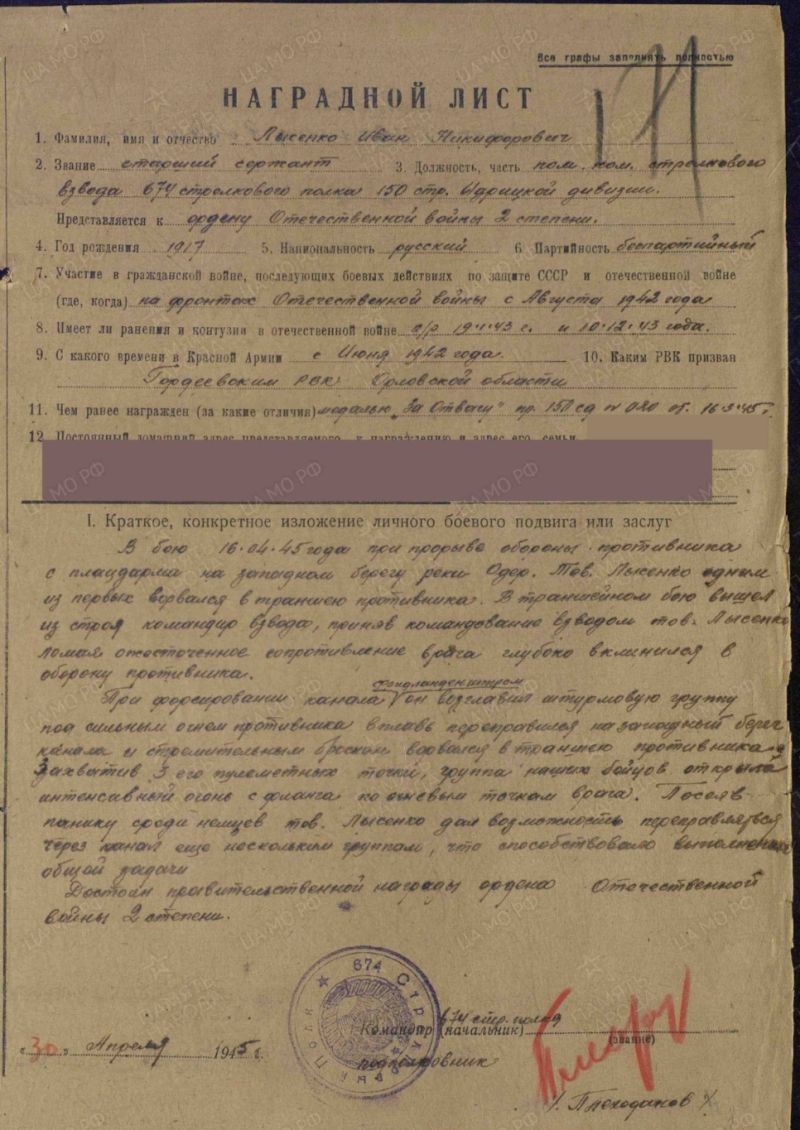 Все графы заполнять полностью
НАГРАДНОЙ ЛИСТ
1. Фамилия, имя и отчество Лысенко Иван Никифорович
2. Звание старший сержант 3. Должность, часть пом. ком. стрелкового
взвода 674 стрелкового полка 150 стр. Идрицкой дивизии.
Представляется к ордену Отечественной войны 2 степени.
4. Год рождения 1917 5. Национальность русский 6. Партийность беспартийный
7. Участие в гражданской войне, последующих боевых действиях по защите СССР и отечественной войне
(где, когда) на фронтах Отечественной войны с Августа 1942 года
8. Имеет ли ранения и контузии в отечественной войне л/р 19.1.43 г. и 10.12.43 года.
9. С какого времени в Красной Армии с Июня 1942 года. 10. Каким РВК призван
Гордеевским РВК Орловской области
11. Чем ранее награжден (за какие отличия) медалью „За Отвагу" пр. 150 сд № 020 от 16.3.45 г.
12. Постоянный домашний адрес представляемого к награждению и адрес его семьи
I. Краткое, конкретное изложение личного боевого подвига или заслуг
В бою 16.04.45 года при прорыве обороны противника
с плацдарма на западном берегу реки Одер. Тов. Лысенко одним
из первых ворвался в траншею противника. В траншейном бою вышел
из строя командир взвода, приняв командование взводом тов. Лысенко
ломая ожесточенное сопротивление врага глубоко вклинился в
оборону противника.
Фридландерштром
При форсировании канала он возглавил штурмовую группу
под сильным огнем противника вплавь переправился на западный берег
канала и стремительным броском ворвался в траншею противника.
Захватив 3 его пулеметных точки, группа наших бойцов открыла
интенсивный огонь с фланга по огневым точкам врага. Посеяв
панику среди немцев тов. Лысенко дал возможность переправляться
через канал еще нескольким группам, что способствовало выполнению
общей задачи
Достоин правительственной награды ордена Отечественной
войны 2 степени.
674 Стрелковый Полк
674 стр. полка
Командир (начальник)
(звание)
„30" Апреля 1945 г.
подполковник
/ Плеходанов /